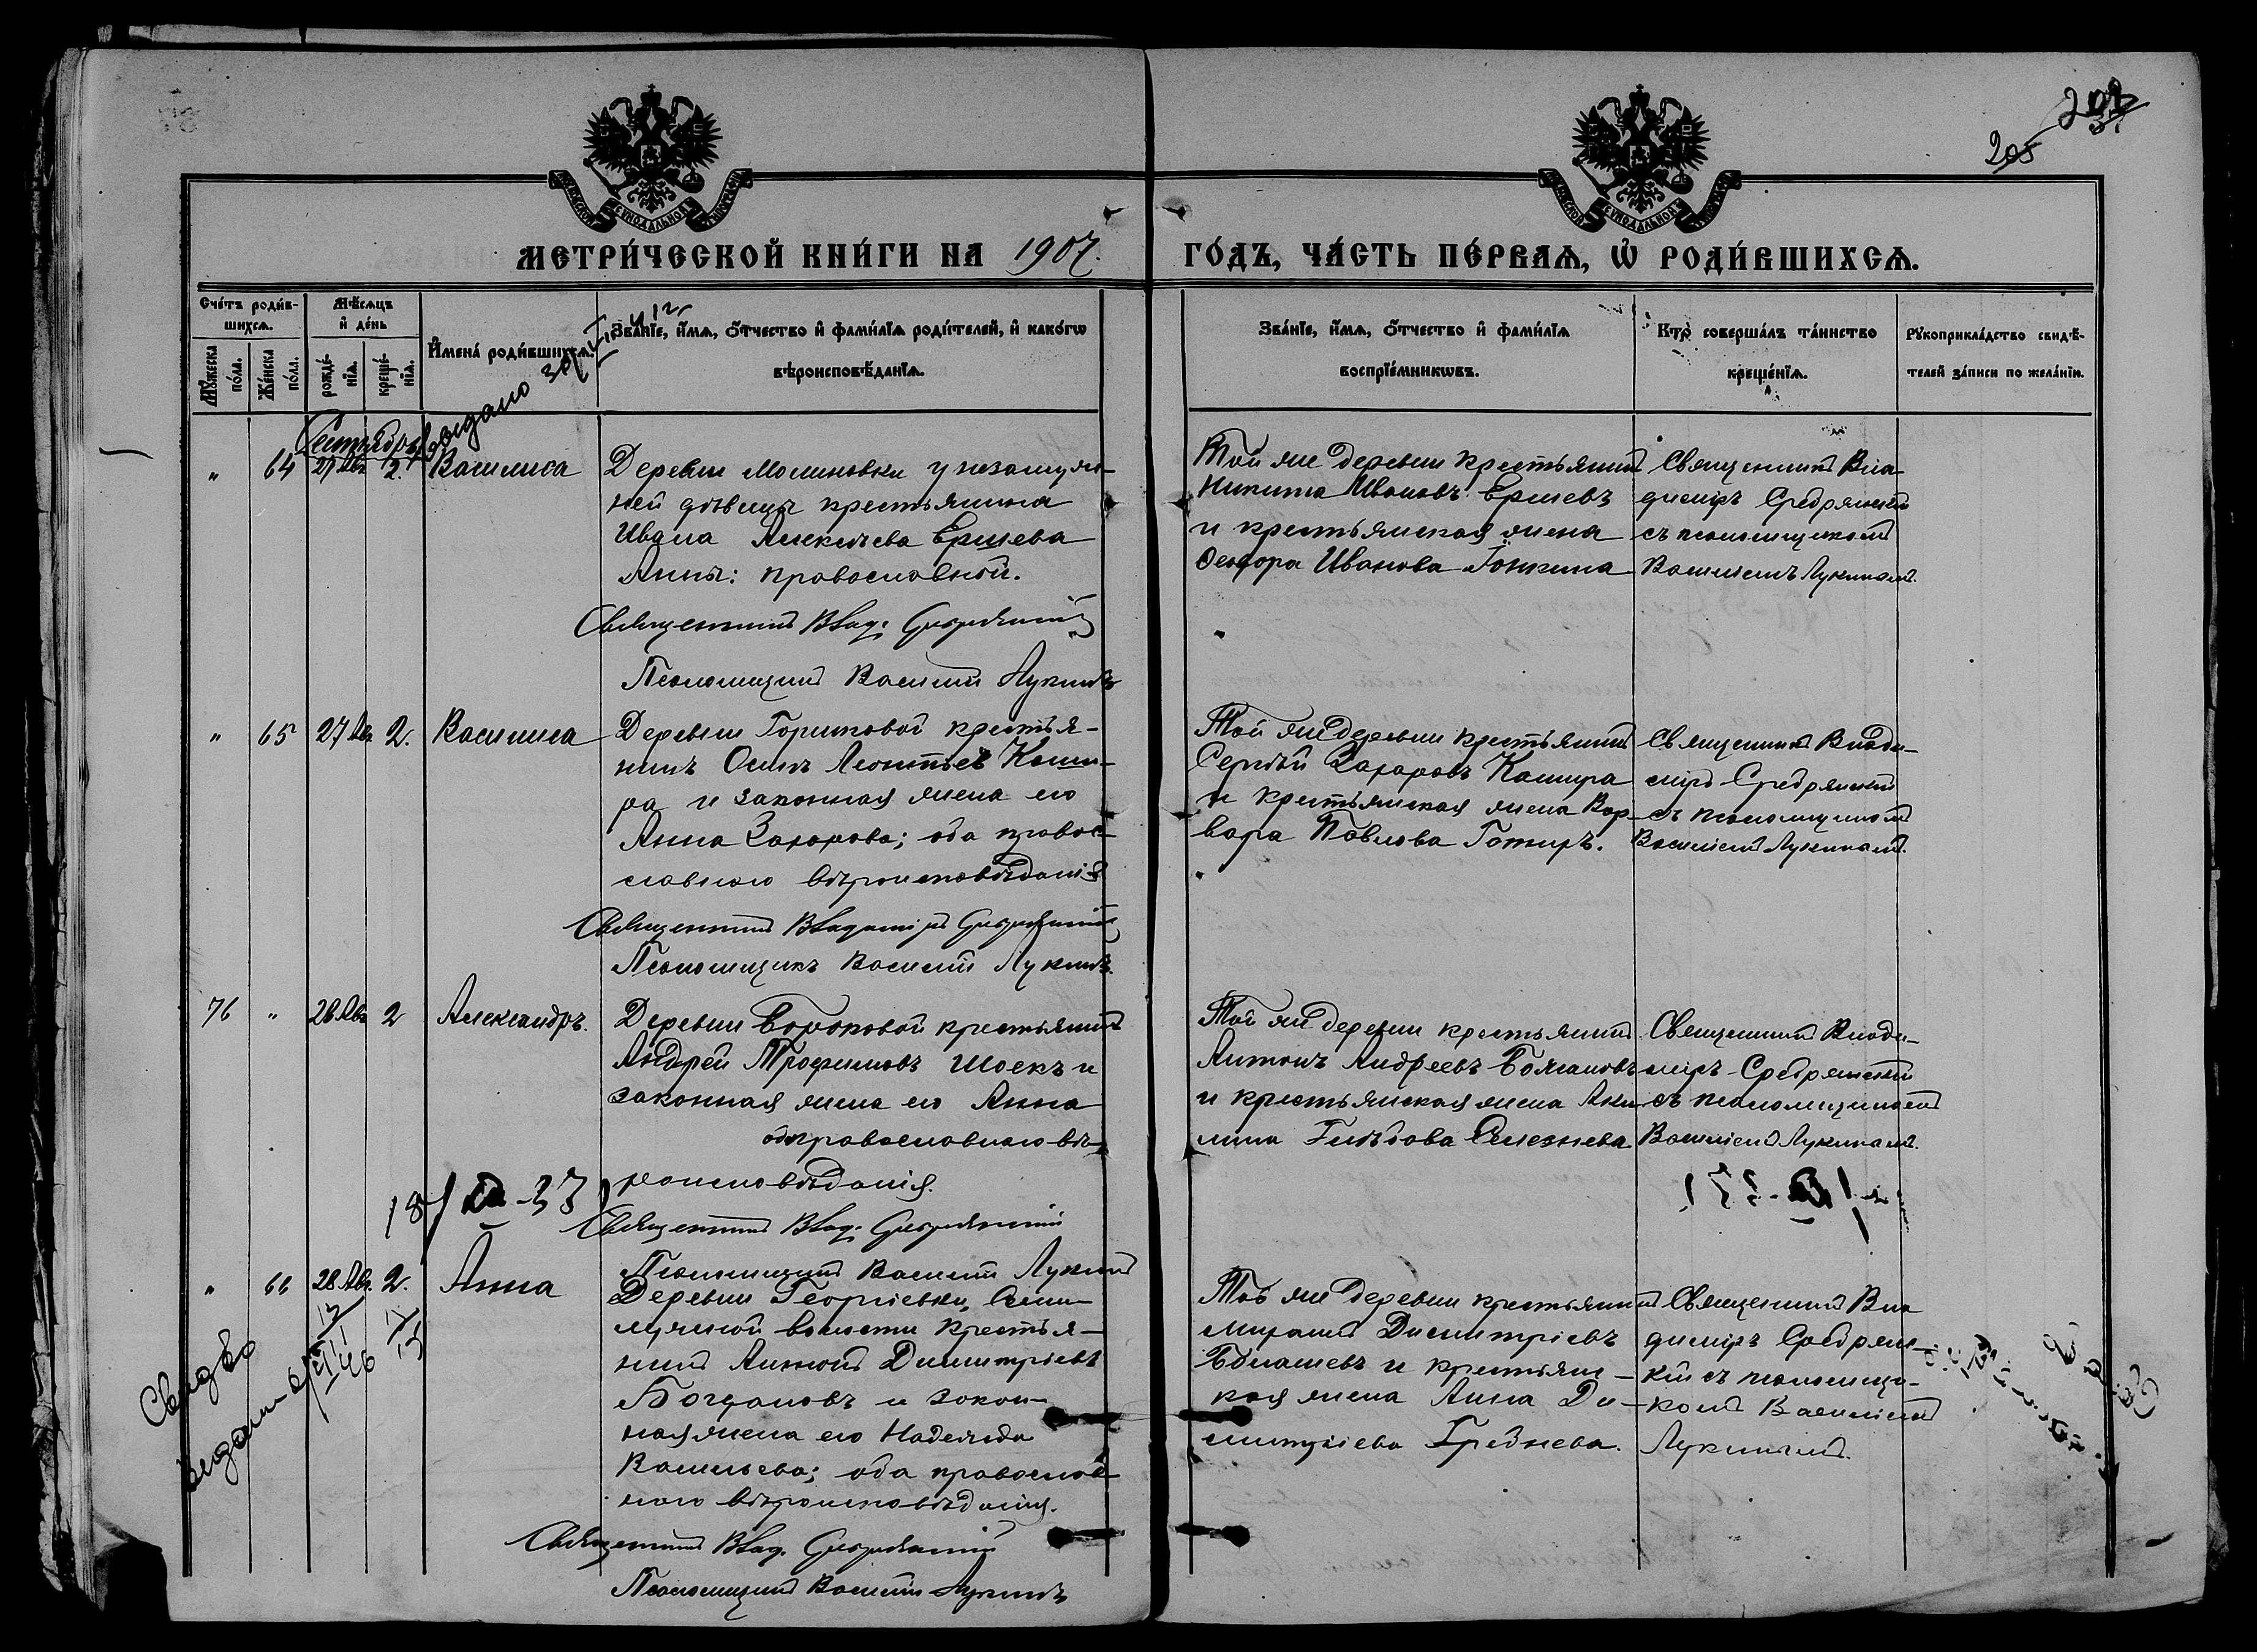 205
МЕТРИ́ЧЕСКОЙ КНИ́ГИ НА 1907.
ГО́ДЪ, ЧА́СТЬ ПЕ́РВАѦ, Ѡ РОДИ́ВШИХСѦ.
Сче́тъ роди́в-
шихсѧ.
Мꙋ́жеска по́ла.
Же́нска по́ла.
Мѣ́сѧцъ
и҆ де́нь
рожде́-
нїѧ.
креще́-
нїѧ.
И҆мена̀ роди́вшихсѧ.
Зва́нїе, и҆́мѧ, ѻ҆́тчество и҆ фами́лїѧ роди́телей, и҆ како́гѡ
вѣроисповѣ́данїѧ.
Зва́нїе, и҆́мѧ, ѻ҆́тчество и҆ фами́лїѧ
воспрїе́мникѡвъ.
Кто̀ соверша́лъ та́инство
креще́нїѧ.
Рꙋкоприкла́дство свидѣ́-
телей за́писи по жела́нїю.
Выдано
Сентябрь
" 64 27 Авг 2. Василиса
Деревни Малиновки у незамуж-
ней дѣвицы крестьянина
Ивана Алексѣева Ершева
Анны: православной.
Священникъ Влад. Средрянскій
Псаломщикъ Василій Лукинъ
Той же деревни крестьянинъ
Никита Ивановъ Ершевъ
и крестьянская жена
Феодора Иванова
Священникъ Вла-
диміръ Средрянскій
съ псаломщикомъ
Василіемъ Лукинымъ.
" 65 27 Авг. 2. Василиса
Деревни крестья-
нинъ Осипъ Леонтьевъ Каши-
ра и законная жена его
Анна Захарова; оба правос-
славнаго вѣроисповѣданія
Священникъ Владиміръ Средрянскій
Псаломщикъ Василій Лукинъ.
Той же деревни крестьянинъ
Сергѣй Захаровъ Кашира
и крестьянская жена Вар-
вара Павлова
Священникъ Влади-
міръ Средрянскій
съ псаломщикомъ
Василіемъ Лукинымъ.
76 " 28 Авг 2 Александръ.
Деревни крестьянинъ
Андрей Трофимовъ Шоекъ и
законная жена его Анна
оба православнаго вѣ-
роисповѣданія.
Священникъ Влад. Средрянскій
Псаломщикъ Василій Лукинъ
Той же деревни крестьянинъ
Антонъ Андреевъ
и крестьянская жена Аку-
лина Глѣбова Селезнева
Священникъ Влади-
міръ Средрянскій
съ псаломщикомъ
Василіемъ Лукинымъ.
" 66 28 Авг. 2. Анна
Деревни Георгіевки,
волости крестья-
нинъ Димитріевъ
Богдановъ и закон-
ная жена его Надежда
Васильева; оба православ-
наго вѣроисповѣданія.
Священникъ Влад. Средрянскій
Псаломщикъ Василій Лукинъ
Той же деревни крестьянинъ
Димитріевъ
и крестьянс-
кая жена Анна Ди-
митріева Гребнева.
Священникъ Вла
диміръ Средрянс-
кій съ псаломщи-
комъ Василіемъ
Лукинымъ.
Свид-во
выдано